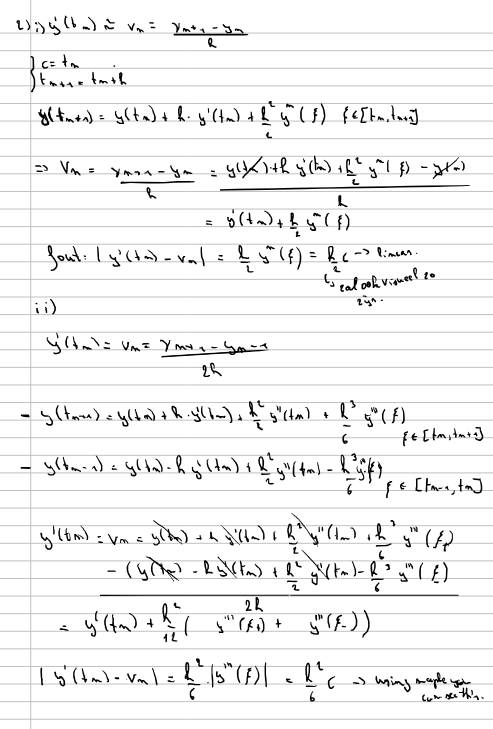 2) i) y'(t_n) ≈ v_n = (y_{n+1} - y_n)/h
{ c = t_n
t_{n+1} = t_n + h
y(t_{n+1}) = y(t_n) + h · y'(t_n) + h²/2 y''(ξ) ξ ∈ [t_n, t_{n+1}]
=> v_n = (y_{n+1} - y_n)/h = (y(t_n) + h y'(t_n) + h²/2 y''(ξ) - y(t_n))/h
= y'(t_n) + h/2 y''(ξ)
fout: |y'(t_n) - v_n| = h/2 y''(ξ) = h/2 c -> linear.
↳ zal ook visueel zo
zijn.
ii)
y'(t_n) = v_n = (y_{n+1} - y_{n-1})/2h
- y(t_{n+1}) = y(t_n) + h · y'(t_n) + h²/2 y''(t_n) + h³/6 y'''(ξ)
ξ ∈ [t_n, t_{n+1}]
- y(t_{n-1}) = y(t_n) - h y'(t_n) + h²/2 y''(t_n) - h³/6 y'''(ξ)
ξ ∈ [t_{n-1}, t_n]
y'(t_n) = v_n = y(t_n) + h y'(t_n) + h²/2 y''(t_n) + h³/6 y'''(ξ_+)
- (y(t_n) - h y'(t_n) + h²/2 y''(t_n) - h³/6 y'''(ξ_-)
2h
= y'(t_n) + h²/12 ( y'''(ξ_+) + y'''(ξ_-))
|y'(t_n) - v_n| = h²/6 · |y'''(ξ)| = h²/6 c -> using maple you
can see this.